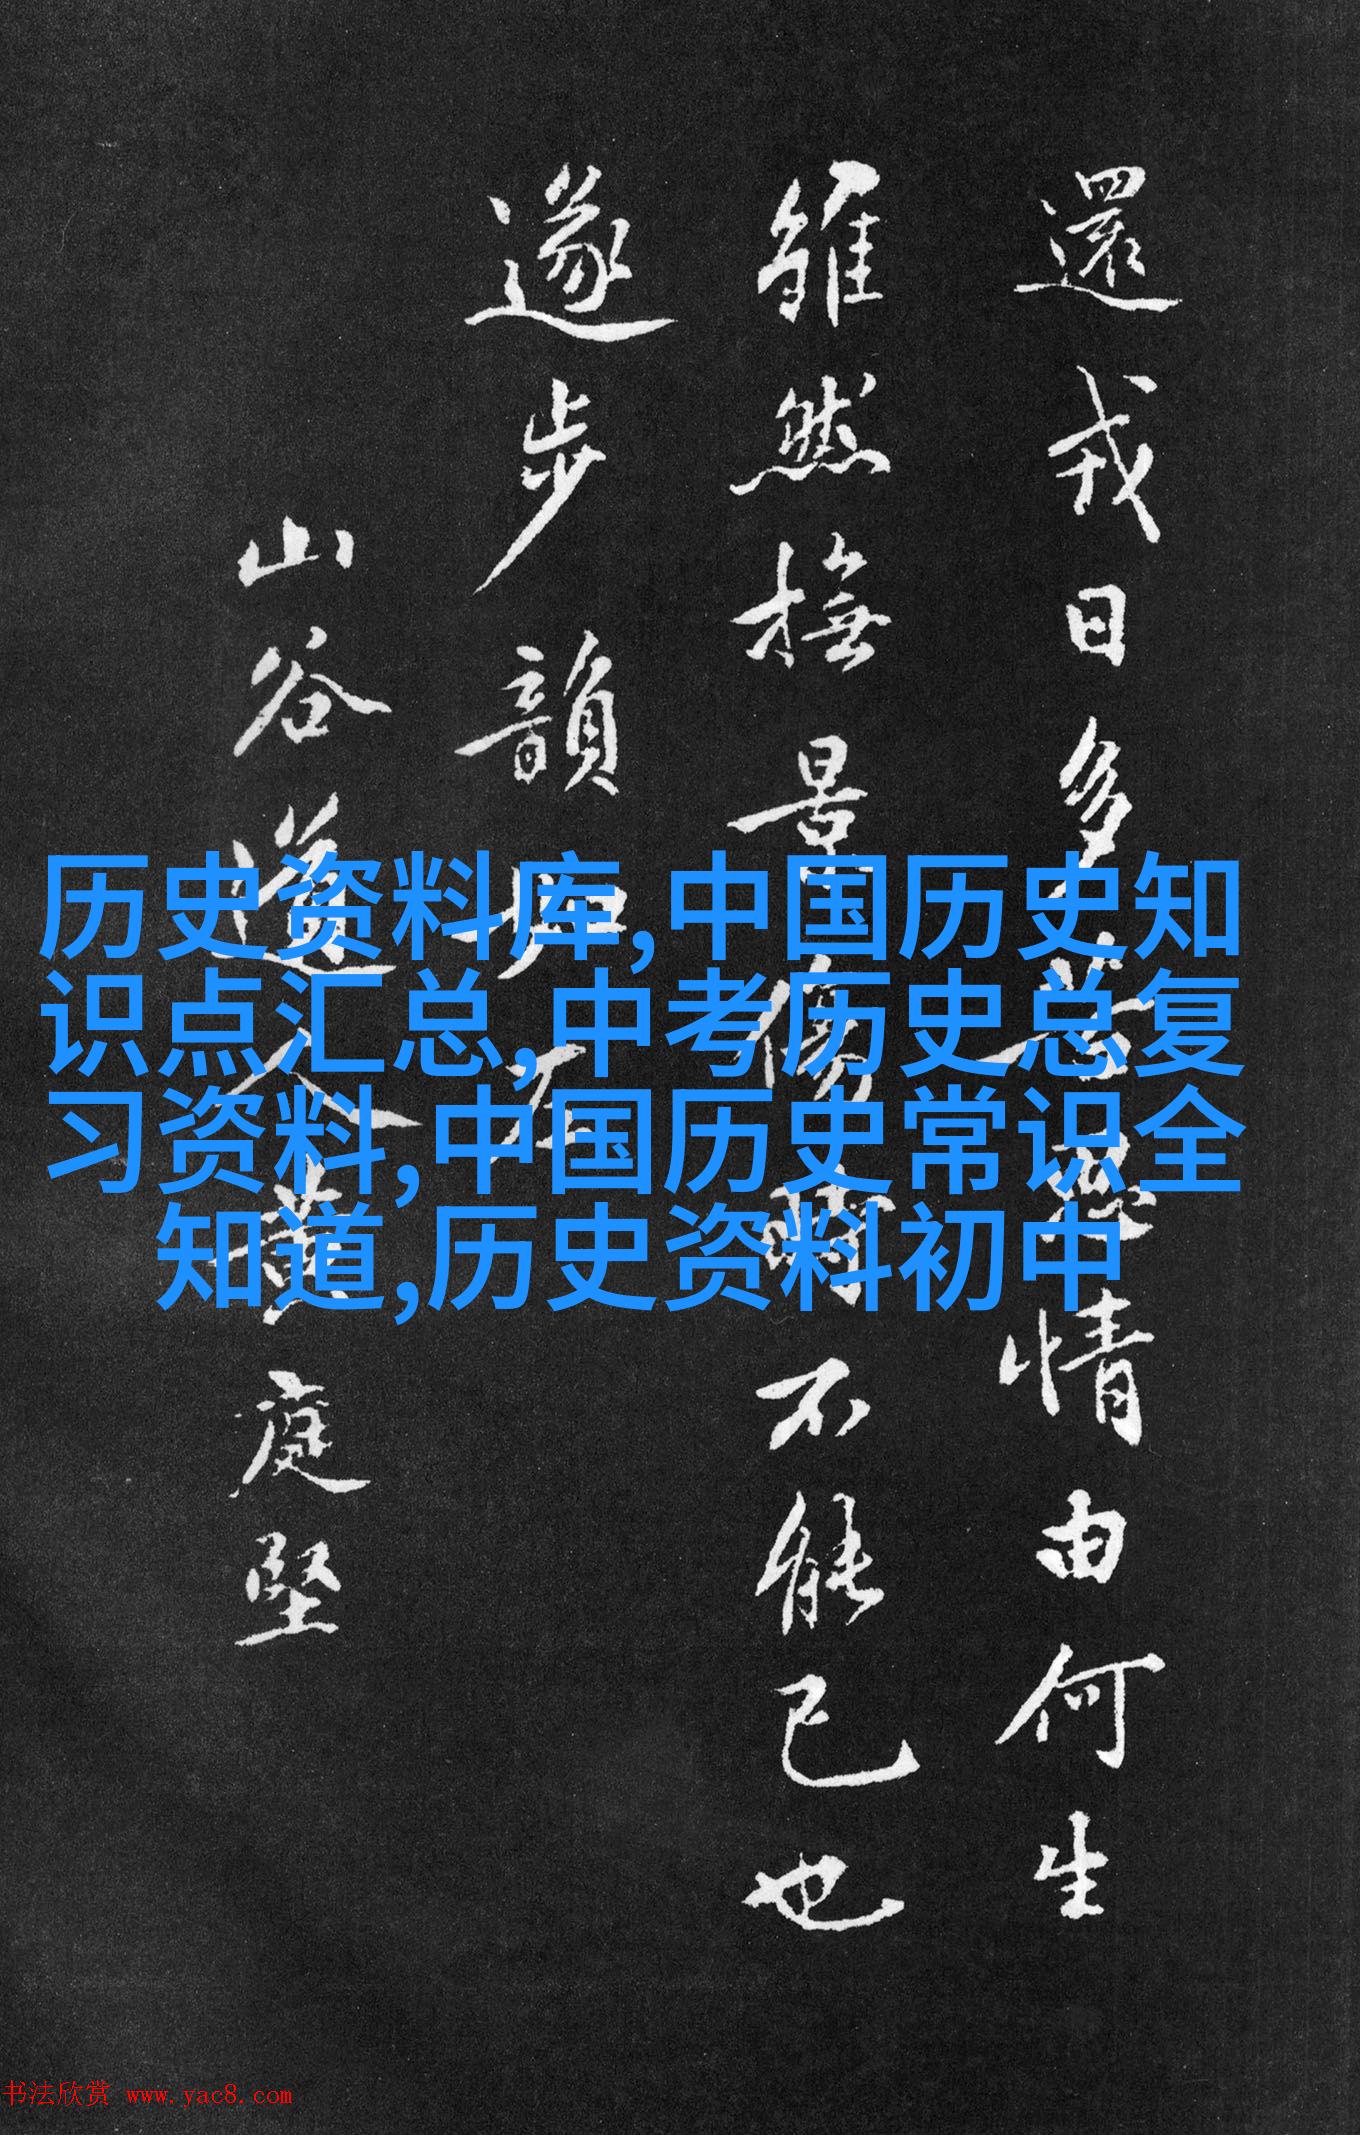 還戎日多情由何生
雖然撫景傷時不能已也
遂步韻如左
山谷道人黃庭堅
历史资料库,中国历史知
识点汇总,中考历史总复
习资料,中国历史常识全
知道,历史资料初中
书法欣赏 www.yac8.com